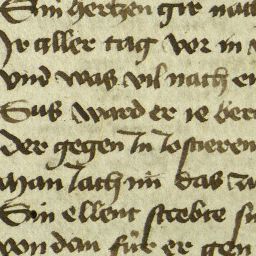 Sin hertzen gir nach
Ir aller tag vor in
vnd was vil nach
Sus ward er ie
Der gegen Im Iostieren
Man sach im das
Sin ellent strebte
von dan für er gen